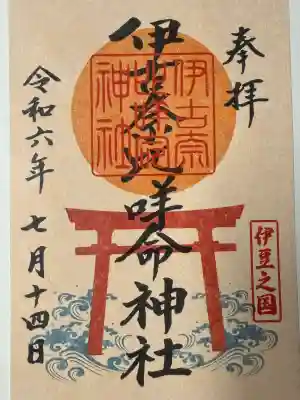 奉拝
伊古奈比咩命神社
伊古奈
比咩命
神社
伊豆之国
令和六年 七月十四日